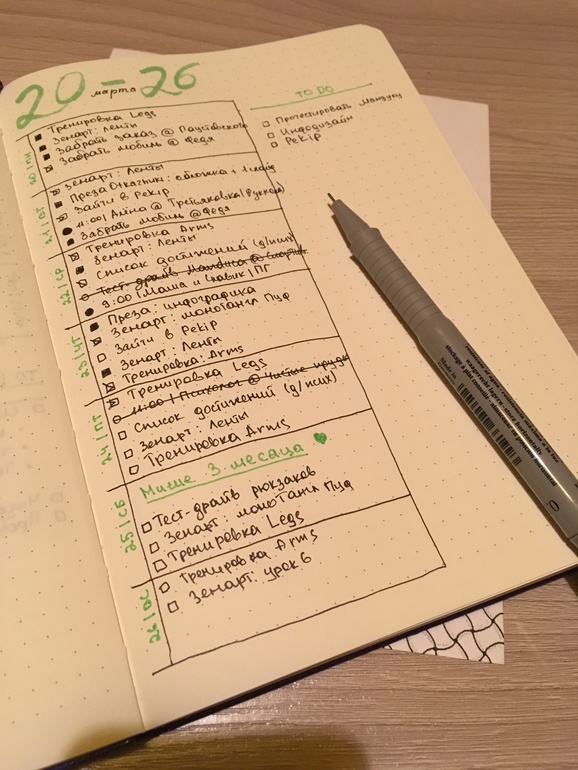 20 – 26
марта
20 | ПН
Тренировка Legs
Зенарт: ленты
Забрать заказ @ Паустовского
Забрать мобиль @ Федя
21 | ВТ
Зенарт: Ленты
Преза Откатчики: обложка + 1 слайд
Зайти в Рекір
11:00 | Алина @ Третьяковка
Забрать мобиль @ Федя
22 | СР
Тренировка Arms
Зенарт: Ленты
Список достижений (д/псих)
Тест-драйв
9:00 | Мама и Славик | ПГ
23 | ЧТ
Преза: инфографика
Зенарт: монотангл Пуф
Зайти в Рекір
Зенарт: Ленты
Тренировка: Arms
24 | ПТ
Тренировка Legs
11:00 | Психолог @ Чистые пруды
Список достижений (д/псих)
Зенарт: Ленты
Тренировка Arms
25 | СБ
Мише 3 месяца
Тест-драйв рюкзаков
Зенарт: монотангл Пуф
Тренировка Legs
26 | ВС
Тренировка Arms
Зенарт: урок 6
TO DO
Протестировать мандуку
Инфодизайн
Рекір
Made in